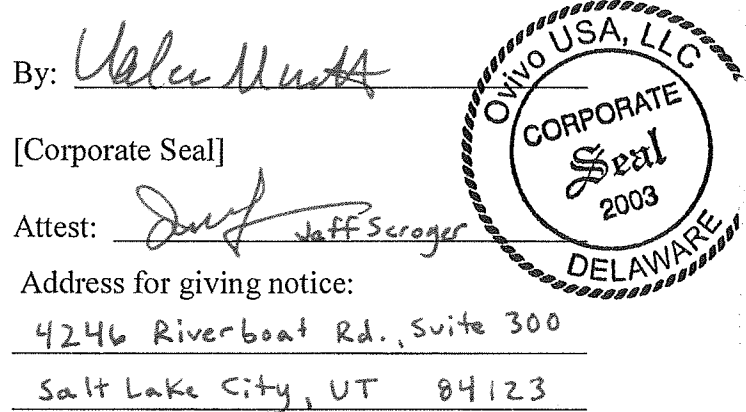 By:
[Corporate Seal]
Attest: Jeff Scroger
Address for giving notice:
4246 Riverboat Rd., Suite 300
Salt Lake City, UT 84123
Ovivo USA, LLC
CORPORATE
Seal
2003
DELAWARE